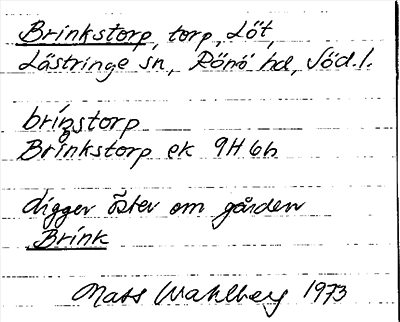 Brinkstorp, torp, Löt,
Lästringe sn, Rönö hd, Söd.l.
briŋstorp
Brinkstorp ek 9H 6h
ligger öster om gården
Brink
Mats Wahlberg 1973